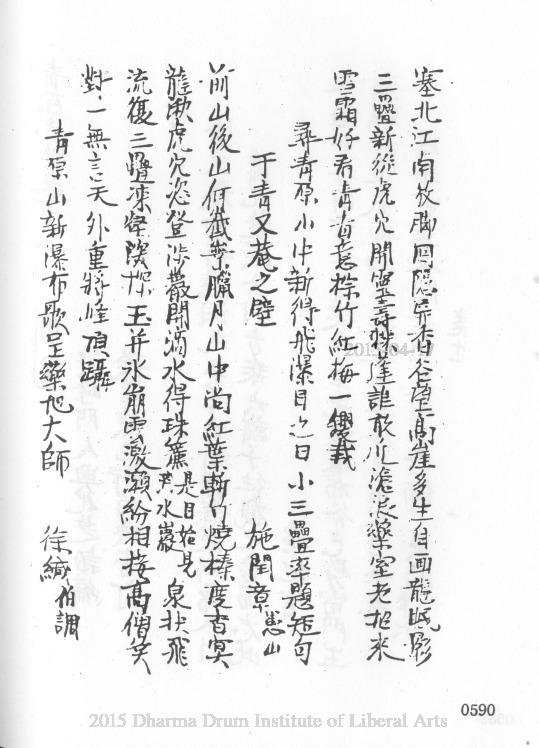 塞北江南放脚回隱
香谷望高崖多生自画龍眠影
三疊新從虎穴開靈壽
誰
藥室老招來
雪霜好看青青意
竹紅梅一
栽
尋青原小中新得飛瀑目之曰小三疊率題短句
于青又菴之壁
施閏章愚山
前山後山何巀嶪臘月山中尚紅葉斬竹燒榛度杳冥
龍湫虎穴恣登涉散開滴水得珠簾是日始見滴水巖
泉抉飛
流復三疊凍
玉井氷崩雪激瀨紛相接高僧笑
對一無言天外重將峰頂躡
青原山新瀑布歌呈藥地大師
徐緘伯調
2015.04.17
0590
2015 Dharma Drum Institute of Liberal Arts